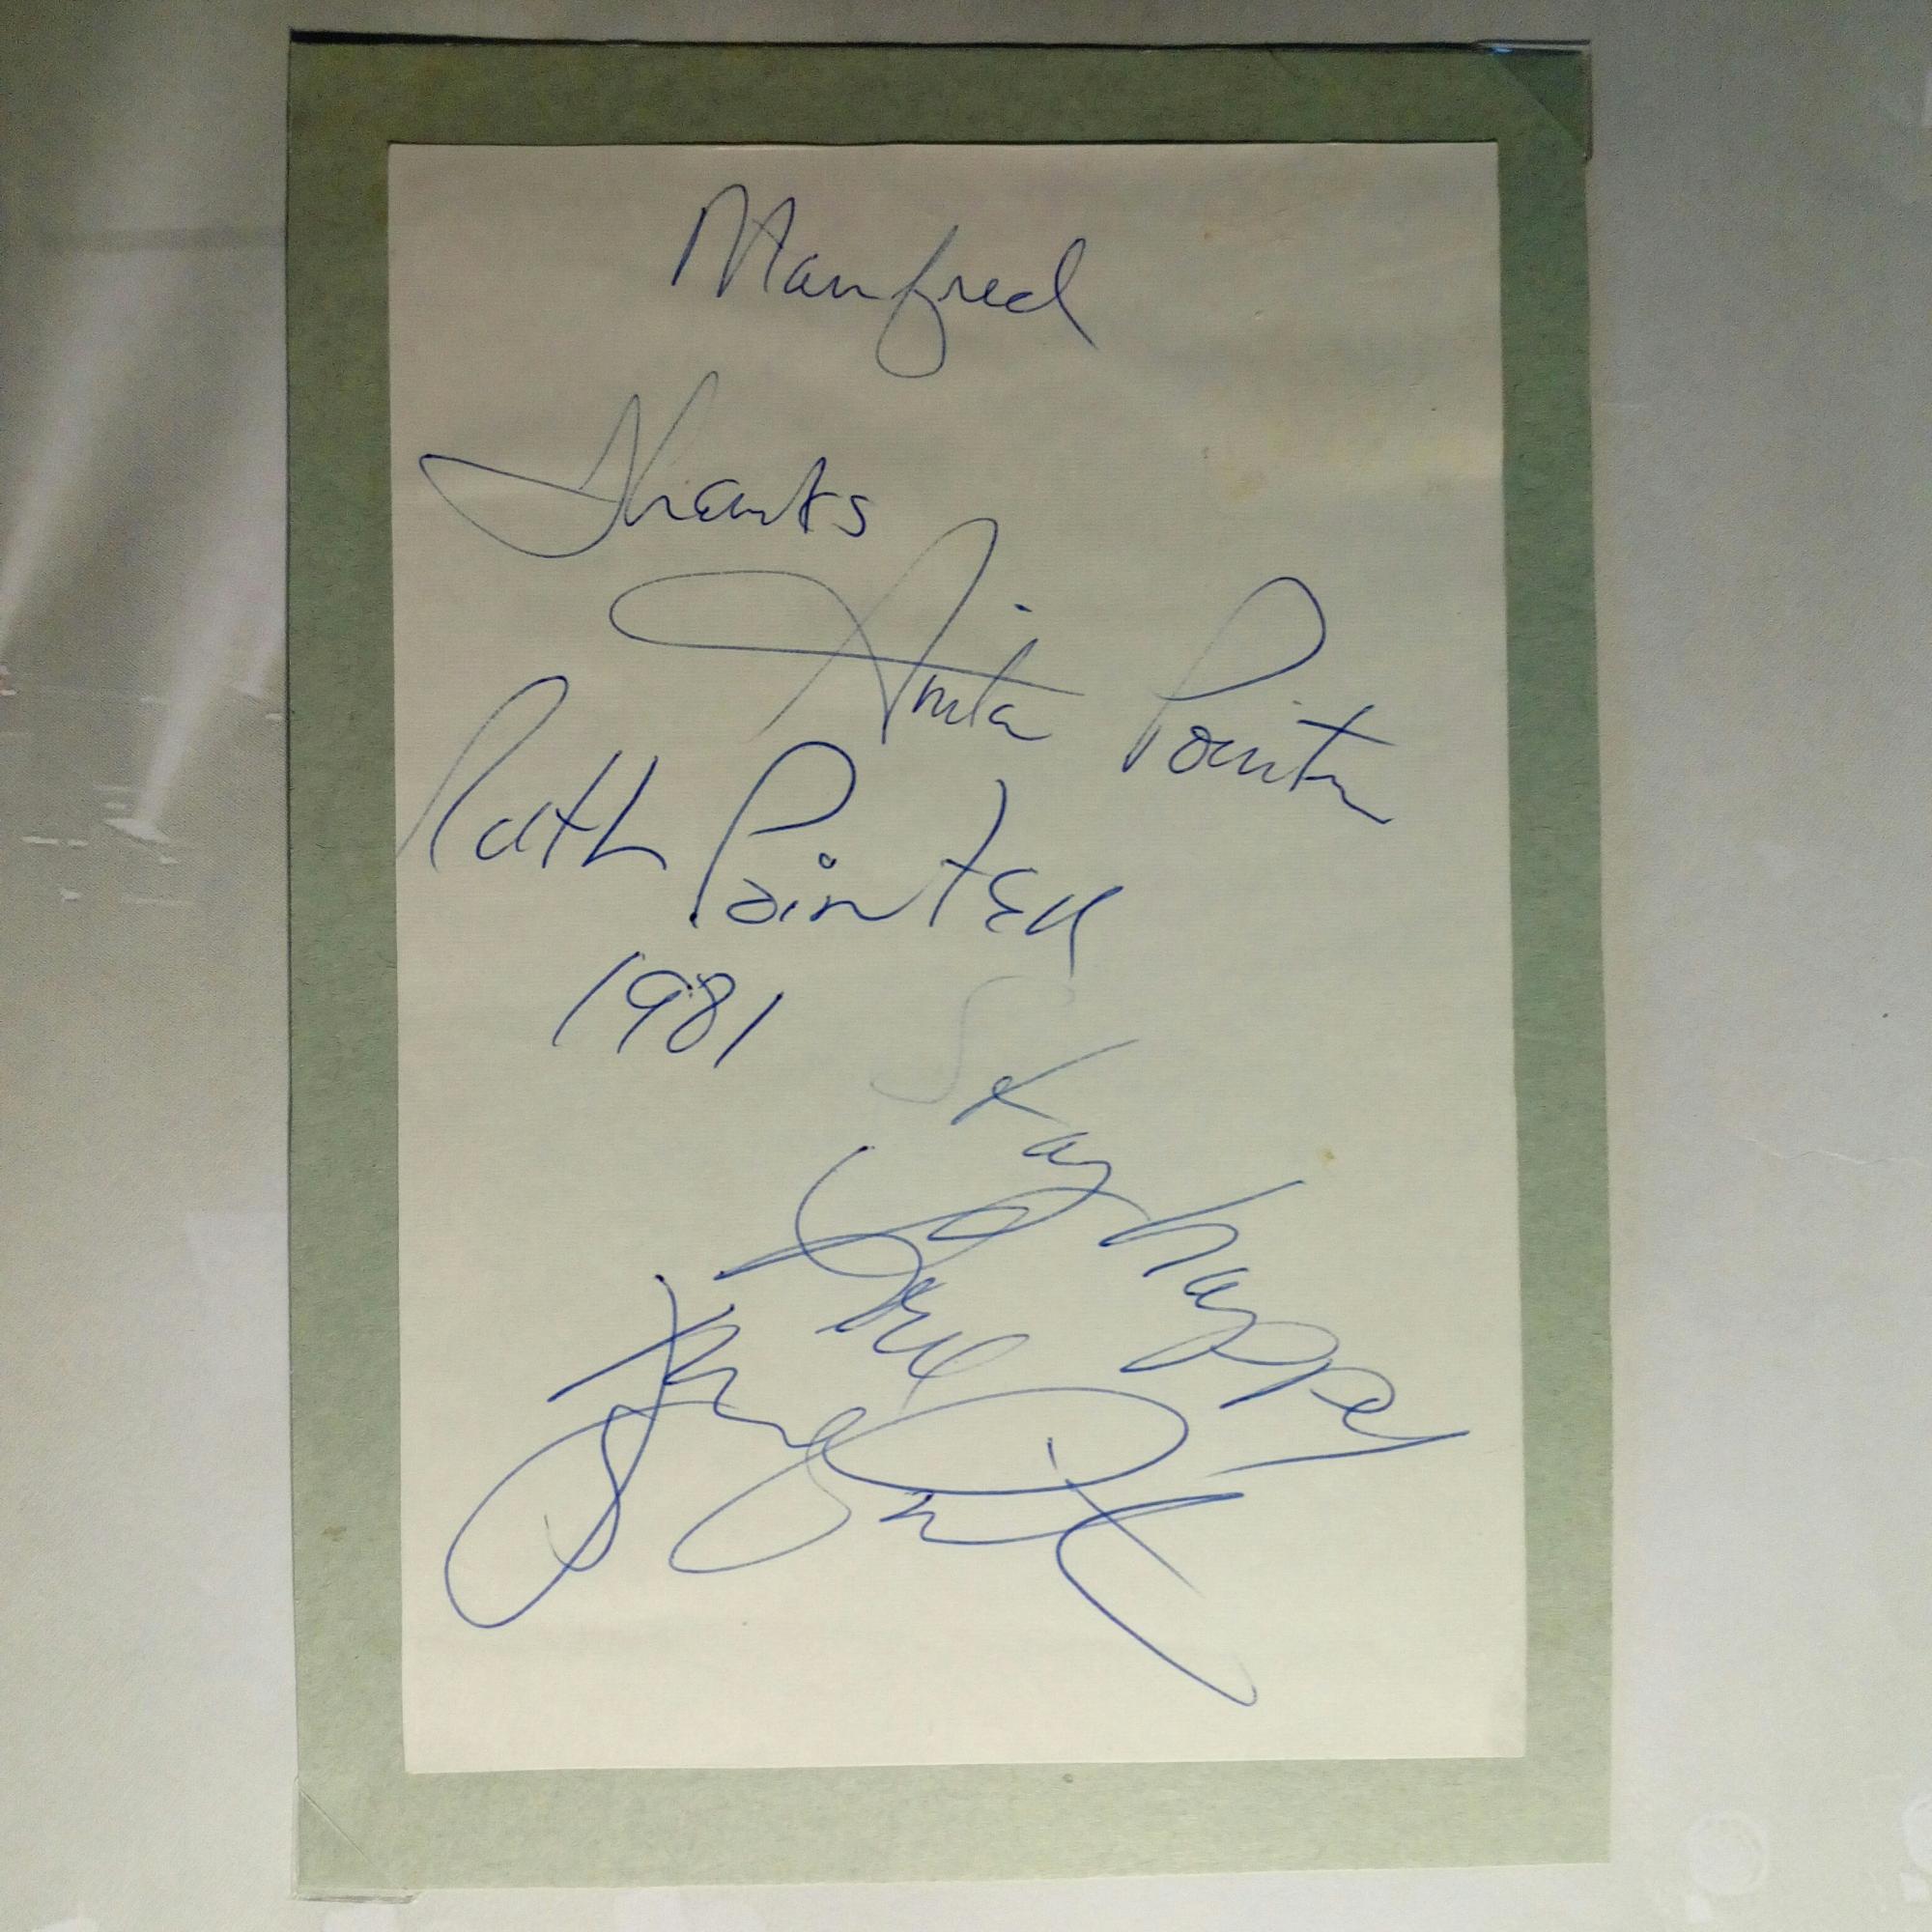 Manfred
Thanks
Anita Pointer
Ruth Pointer
1981
Stay happy
Love
June Pointer